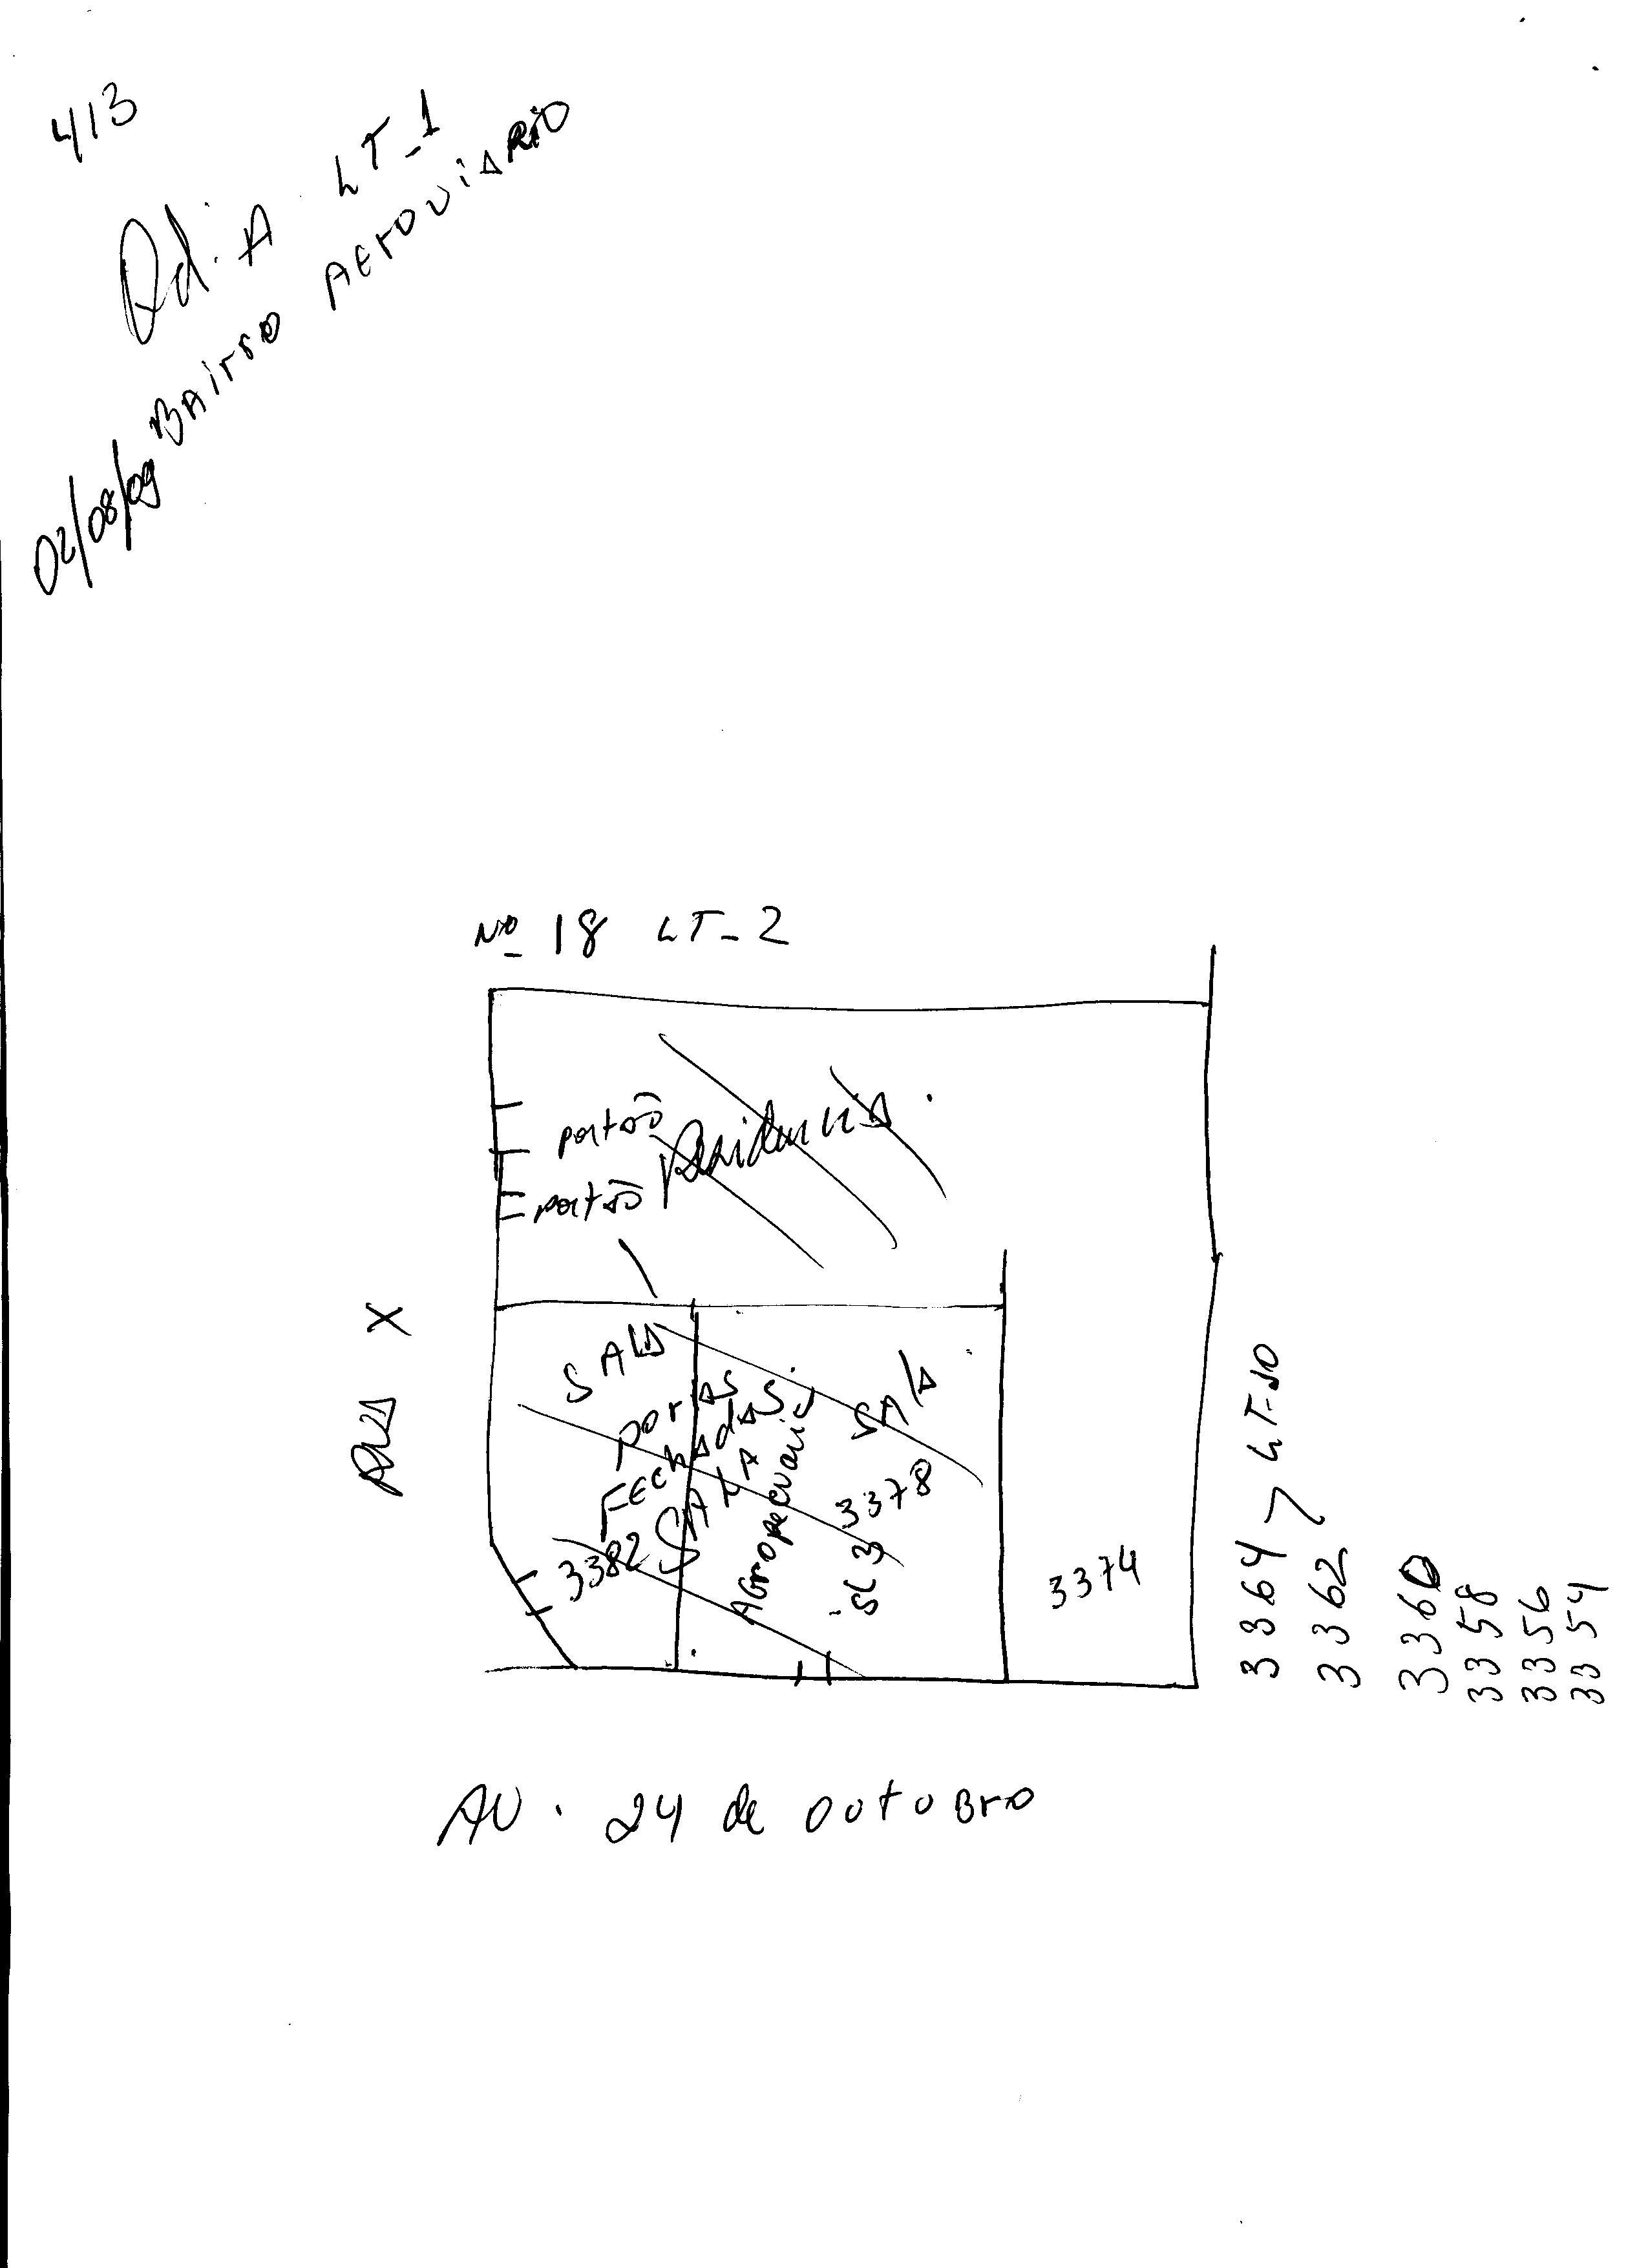 413
Qd. A LT-1
BAirro AEroviARiO
02/08/09
Nº 18 LT-2
portão
portão
Residencia
RUA X
SALA
portas
FEchadas
SALA
3382
Agropecuaria
SAlA
3378
SL 3
3374
3364 > LT-10
3362
3360
3358
3356
3354
AV. 24 de outuBro